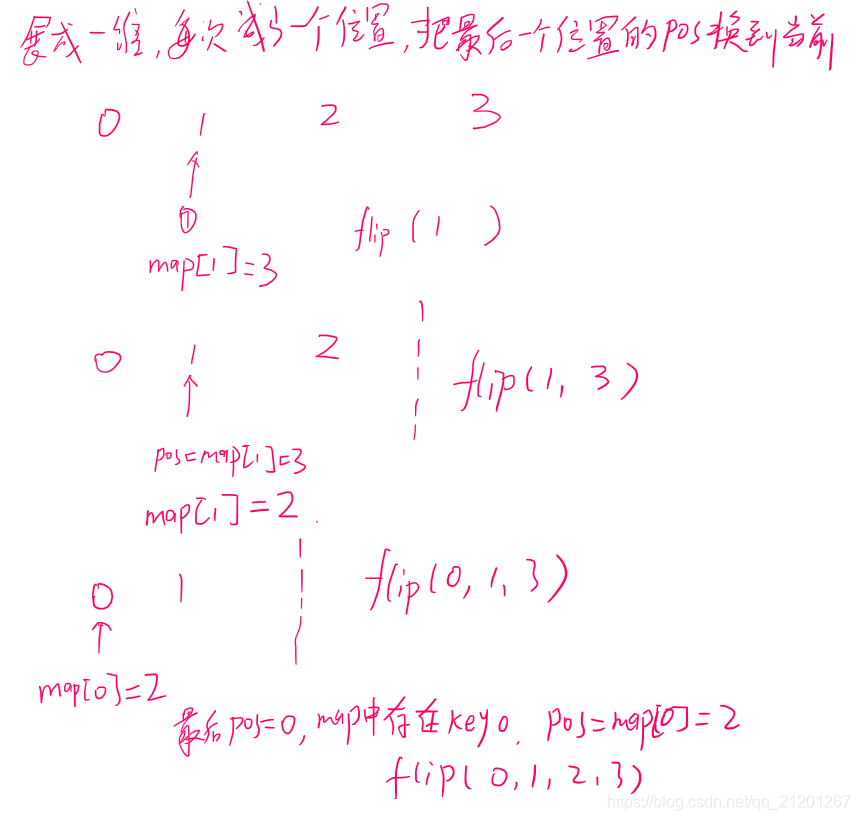 展成一维,每次减少一个位置,把最后一个位置的pos换到当前
0 1 2 3
①
flip (1 )
map[1]=3
0 1 2
flip(1, 3)
pos=map[1]=3
map[1]=2.
0 1
flip(0,1,3)
map[0]=2
最后pos=0,map中存在key0. pos=map[0]=2
flip(0,1,2,3)
https://blog.csdn.net/qq_21201267